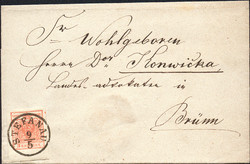 Sr Wohlgeboren
Herrn Dor Konwička
Landes advokaten in
Brünn
STEFANAU
9/5